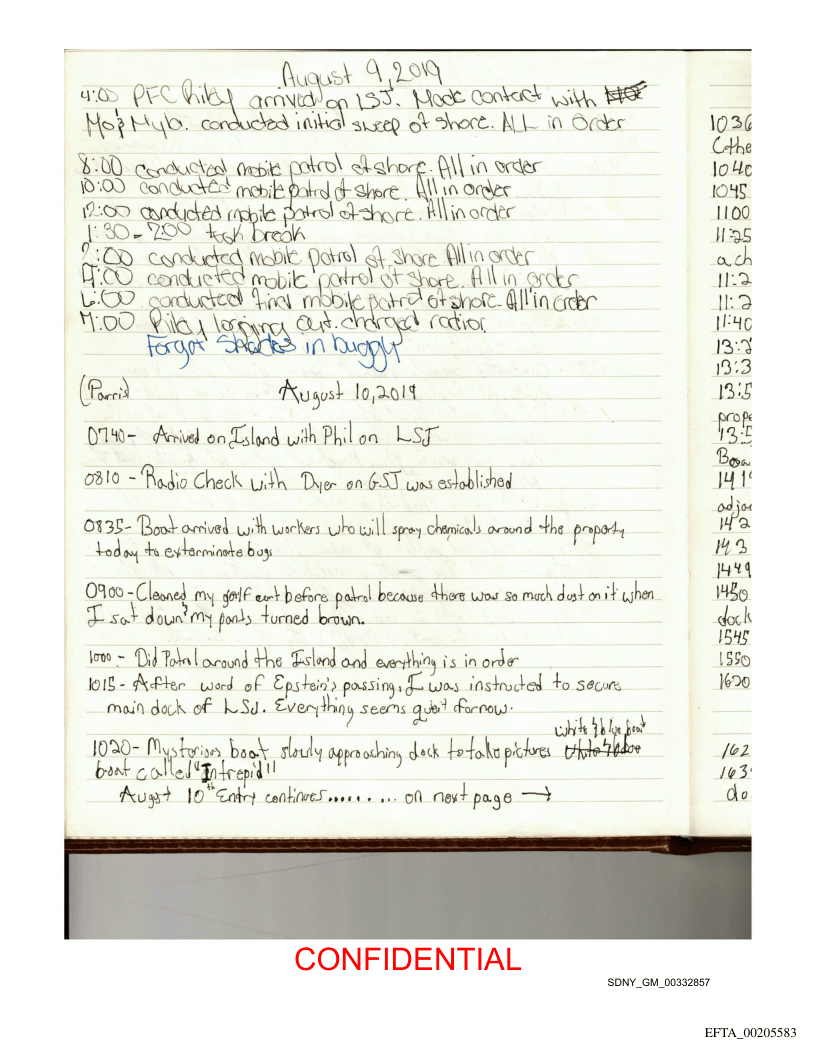 August 9, 2019
4:00 PFC Riley arrived on LSJ. Made contact with
Mo & Myb. conducted initial sweep of shore. ALL in Order
8:00 conducted mobile patrol of shore. All in order
10:00 conducted mobile patrol of shore. All in order
12:00 conducted mobile patrol of shore. All in order
1:30 - 2:00 took break
2:00 conducted mobile patrol of shore All in order
4:00 conducted mobile patrol of shore. All in order
6:00 conducted final mobile patrol of shore. All in order
7:00 Riley logging out. charged radior
Forgot Shades in buggy
(Parris) August 10, 2019
0740- Arrived on Island with Phil on LSJ
0810 - Radio Check with Dyer on GSJ was established
0835- Boat arrived with workers who will spray chemicals around the property
today to exterminate bugs
0900-Cleaned my golf cart before patrol because there was so much dust on it when
I sat down my pants turned brown.
1000 - Did Patrol around the Island and everything is in order
1015- After word of Epstein's passing, I was instructed to secure
main dock of LSJ. Everything seems quiet for now.
white & blue boat
1020- Mysterious boat slowly approaching dock to take pictures
boat called "Intrepid"
August 10th Entry continues.......... on next page →
1036
Cothe
1040
1045
1100
11:25
a ch
11:2
11:2
11:40
13:2
13:3
13:5
prope
13:5
Boa
141
adjac
142
143
1449
1450
dock
1545
1550
1620
162
163
do
CONFIDENTIAL
SDNY_GM_00332857
EFTA_00205583